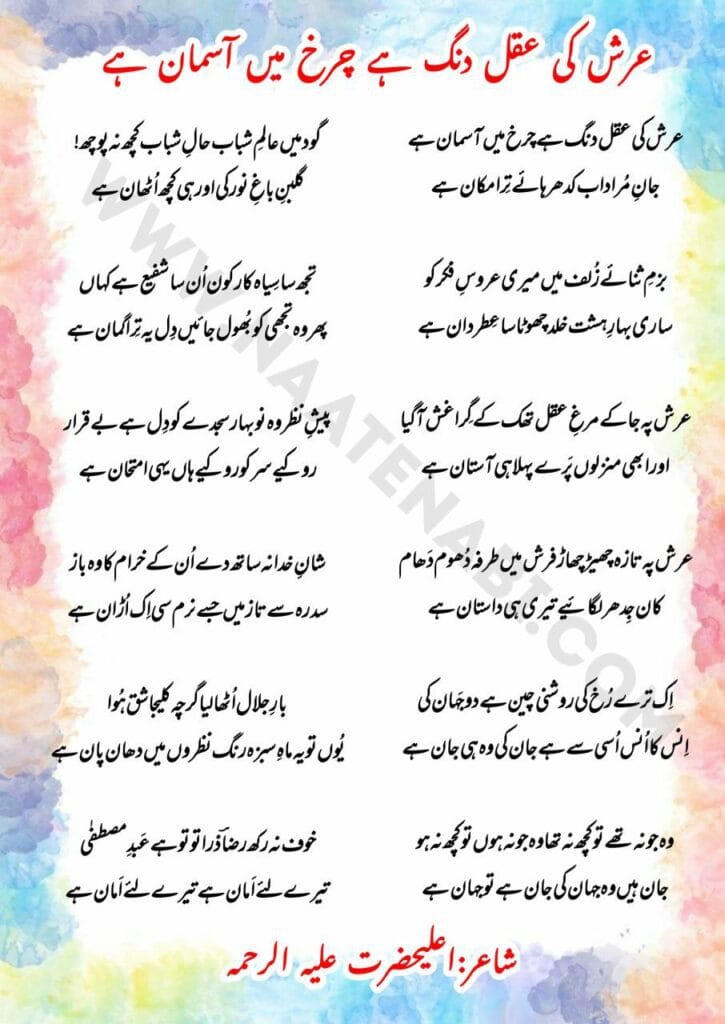 عرش کی عقل دنگ ہے چرخ میں آسمان ہے
عرش کی عقل دنگ ہے چرخ میں آسمان ہے
جانِ مُراد اب کدھر ہائے تِرا مکان ہے
بزمِ ثنائے زُلف میں میری عروسِ فکر کو
ساری بہارِ ہشت خلد چھوٹا سا عِطردان ہے
عرش پہ جا کے مرغِ عقل تھک کے گِرا غش آ گیا
اور ابھی منزلوں پَرے پہلا ہی آستان ہے
عرش پہ تازہ چھیڑ چھاڑ فرش میں طرفہ دُھوم دَھام
کان جِدھر لگائیے تیری ہی داستان ہے
اِک ترے رُخ کی روشنی چین ہے دو جَہان کی
اِنس کا اُنس اُسی سے ہے جان کی وہ ہی جان ہے
وہ جو نہ تھے تو کچھ نہ تھا وہ جو نہ ہوں تو کچھ نہ ہو
جان ہیں وہ جہان کی جان ہے تو جہان ہے
گود میں عالمِ شباب حالِ شباب کچھ نہ پوچھ!
گلبنِ باغِ نور کی اور ہی کچھ اُٹھان ہے
تجھ سا سِیاہ کار کون اُن سا شفیع ہے کہاں
پھر وہ تجھی کو بُھول جائیں دِل یہ تِرا گمان ہے
پیشِ نظر وہ نو بہار سجدے کو دِل ہے بے قرار
روکیے سر کو روکیے ہاں یہی امتحان ہے
شانِ خدا نہ ساتھ دے اُن کے خرام کا وہ باز
سدرہ سے تا زمیں جسے نرم سی اِک اُڑان ہے
بارِ جلال اُٹھا لیا گرچہ کلیجا شق ہُوا
یُوں تو یہ ماہِ سبزہ رنگ نظروں میں دھان پان ہے
خوف نہ رکھ رضاؔ ذرا تو تو ہے عَبدِ مصطفیٰ
تیرے لئے اَمان ہے تیرے لئے اَمان ہے
شاعر:اعلیحضرت علیہ الرحمہ
WWW.NAATENABT.COM